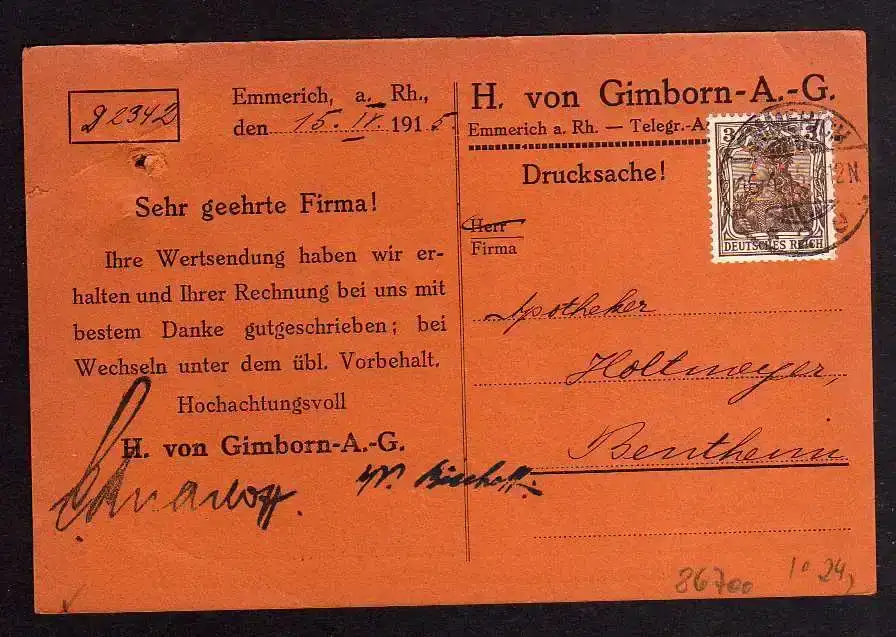 D 2342
Emmerich, a. Rh.,
den 15. IX. 1915.
Sehr geehrte Firma!
Ihre Wertsendung haben wir er-
halten und Ihrer Rechnung bei uns mit
bestem Danke gutgeschrieben; bei
Wechseln unter dem übl. Vorbehalt.
Hochachtungsvoll
H. von Gimborn-A.-G.
Bischoff.
H. von Gimborn-A.-G.
Emmerich a. Rh. — Telegr.-A
Drucksache!
3
DEUTSCHES REICH
12N
Herr
Firma
Apotheker
Holtmeyer,
Bentheim
86700